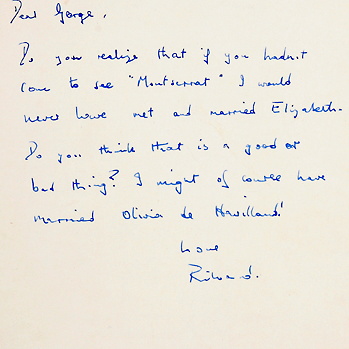 Dear George,
Do you realize that if you hadn't
come to see "Montserrat" I would
never have met and married Elizabeth.
Do you think that is a good or
bad thing? I might of course have
married Olivia de Havilland!
Love
Richard.